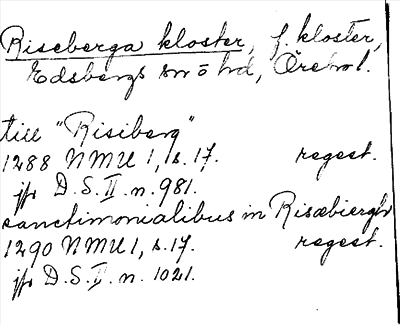 Riseberga kloster, f. kloster,
Edsbergs sn o hd, Örebro l.
till "Risiberg"
1288 NMU 1, s. 17. regest.
jfr D.S. II. n. 981.
sanctimonialibus in Risæbiergh
1290 NMU 1, s. 17. regest.
jfr D.S. II. n. 1021.